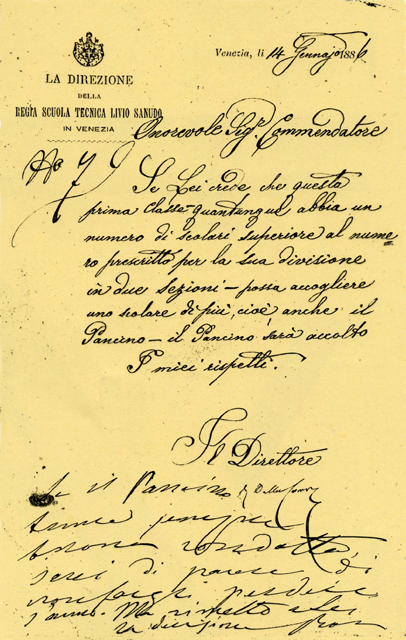 LA DIREZIONE
DELLA
REGIA SCUOLA TECNICA LIVIO SANUDO
IN VENEZIA
Venezia, li 14 Gennajo 1886
Onorevole Sigr. Commendatore
No 7
Se Lei crede che questa
prima classe quantunque abbia un
numero di scolari superiore al nume
ro prescritto per la sua divisione
in due sezioni – possa accogliere
uno scolare di più, cioè anche il
Pancino – il Pancino sarà accolto
I miei rispetti.
Il Direttore
Se il Pancino
tenne sempre
buona condotta,
sarei di parere di
non fargli perdere
l'anno. Ma rimetto a Lei
la decisione